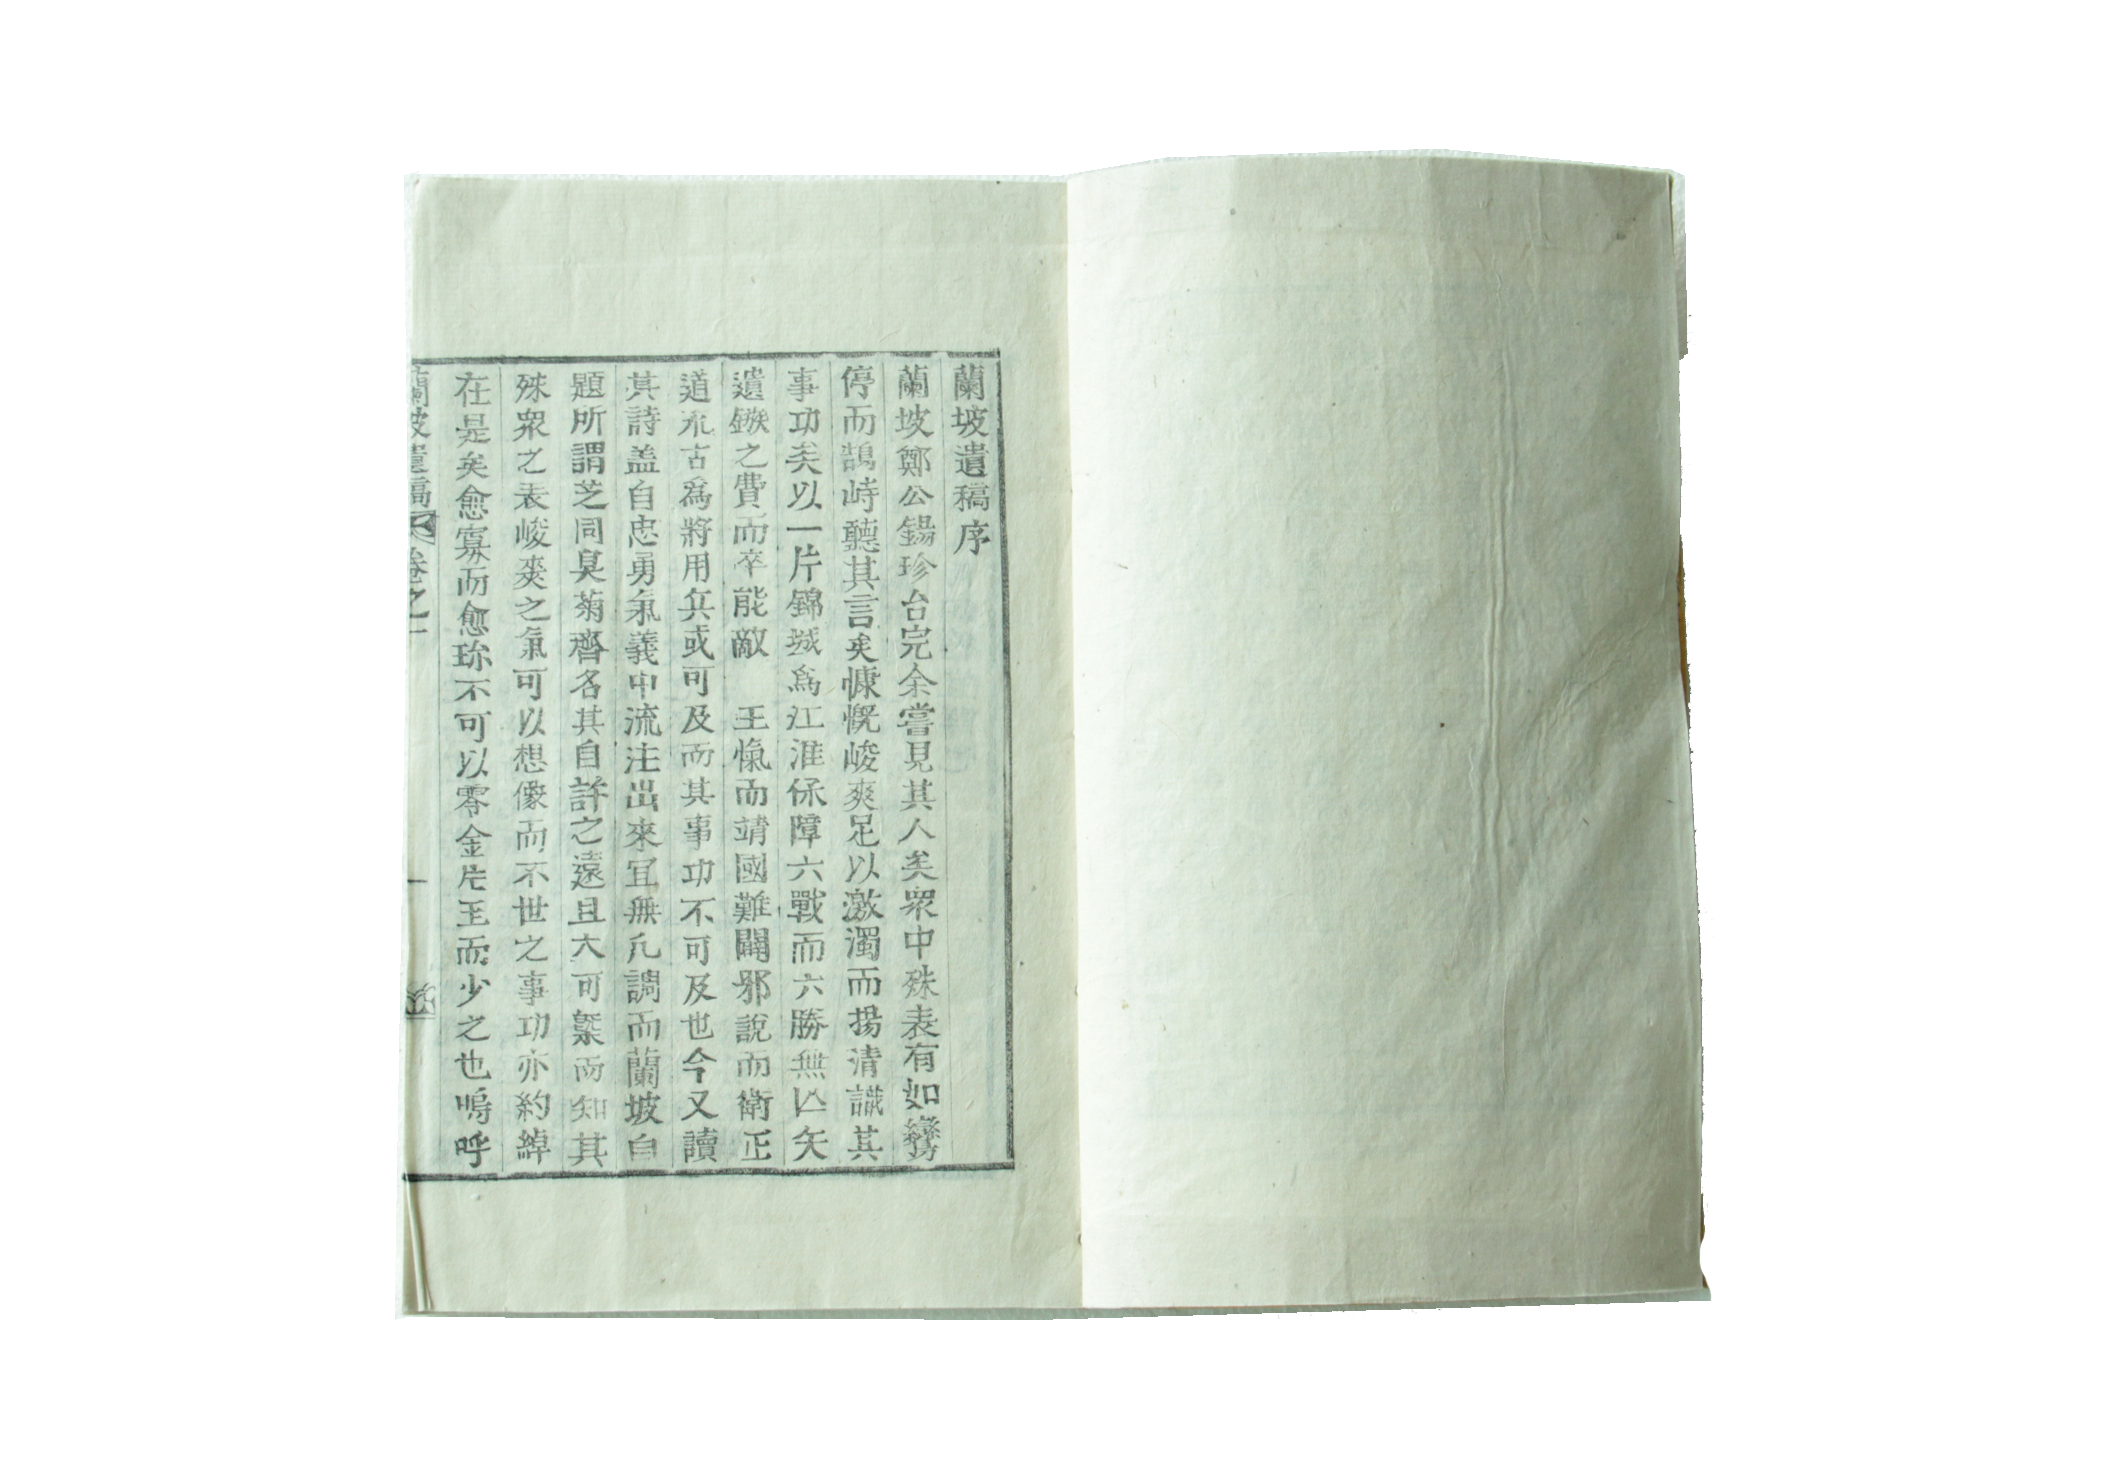 蘭坡遺稿序
蘭坡鄭公錫珍台完余嘗見其人矣衆中殊表有如鸞
停而鵠峙聽其言矣慷慨峻爽足以激濁而揚清識其
事功矣以一片錦城爲江淮保障六戰而六勝無亡矢
遺鏃之費而卒能敵　王愾而靖國難闢邪說而衛正
道永古爲將用兵或可及而其事功不可及也今又讀
其詩盖自忠勇氣義中流注出來冝無凡調而蘭坡自
題所謂芝同臭菊齊名其自許之遠且大可槩而知其
殊衆之表峻爽之氣可以想像而不世之事功亦約綽
在是矣愈寡而愈珎不可以零金片玉而少之也嗚呼
蘭坡遺稿 卷之一 一